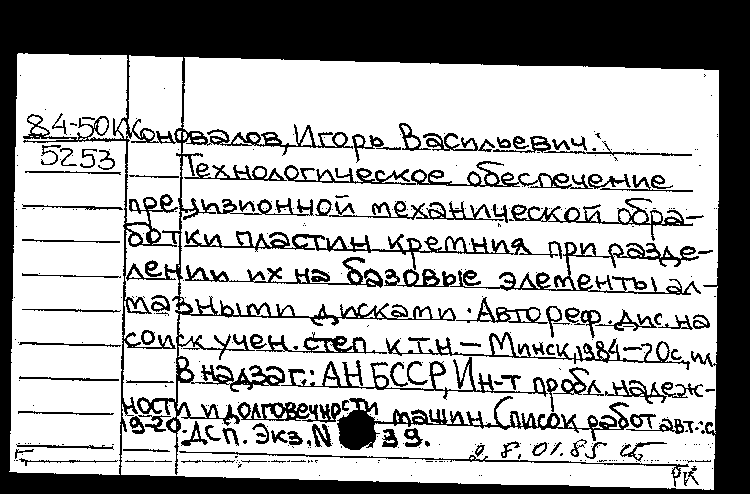 84-50К Коновалов, Игорь Васильевич.
5253 Технологическое обеспечение
прецизионной механической обра-
ботки пластин кремния при разде-
лении их на базовые элементы ал-
мазными дисками: Автореф. дис. на
соиск учен. степ. к.т.н. — Минск, 1984.— 20с, ил.
В надзаг.: АН БССР, Ин-т пробл. надеж-
ности и долговечности машин. Список работ авт.: с
19-20. ДСП. Экз. N 39.
8.01.85
РК